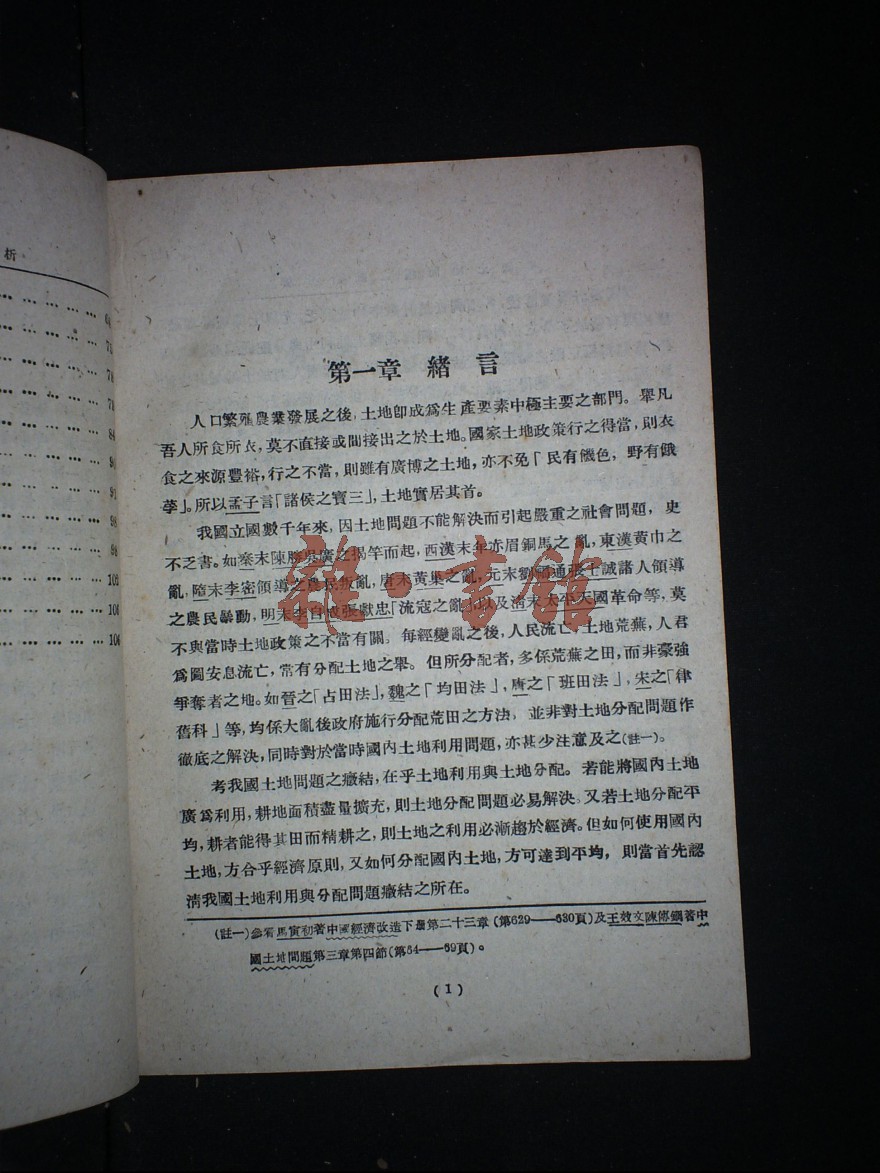 析
… … 64
… … … 71
… … … 78
… … … 78
… … … 84
… … … 90
… … … 91
… … … 98
… … … 98
… … … 105
… … … 106
… … … 106
第一章 緒言
人口繁殖農業發展之後,土地卽成爲生產要素中極主要之部門。舉凡
吾人所食所衣,莫不直接或間接出之於土地。國家土地政策行之得當,則衣
食之來源豐裕,行之不當,則雖有廣博之土地,亦不免「民有饑色,野有餓
莩」。所以孟子言「諸侯之寶三」,土地實居其首。
我國立國數千年來,因土地問題不能解決而引起嚴重之社會問題,史
不乏書。如秦末陳勝吳廣之揭竿而起,西漢末年赤眉銅馬之亂,東漢黃巾之
亂,隋末李密領導之農民叛亂,唐末黃巢之亂,元末劉福通張士誠諸人領導
之農民暴動,明末李自成張獻忠「流寇之亂」以及清末太平天國革命等,莫
不與當時土地政策之不當有關。每經變亂之後,人民流亡,土地荒蕪,人君
爲圖安息流亡,常有分配土地之舉。但所分配者,多係荒蕪之田,而非豪強
爭奪者之地。如晉之「占田法」,魏之「均田法」,唐之「班田法」,宋之「律
舊科」等,均係大亂後政府施行分配荒田之方法,並非對土地分配問題作
徹底之解決,同時對於當時國內土地利用問題,亦甚少注意及之(註一)。
考我國土地問題之癥結,在乎土地利用與土地分配。若能將國內土地
廣爲利用,耕地面積盡量擴充,則土地分配問題必易解決。又若土地分配平
均,耕者能得其田而精耕之,則土地之利用必漸趨於經濟。但如何使用國內
土地,方合乎經濟原則,又如何分配國內土地,方可達到平均,則當首先認
淸我國土地利用與分配問題癥結之所在。
(註一)參看馬寅初著中國經濟改造下册第二十三章(第629——630頁)及王效文陳傳鋼著中
國土地問題第三章第四節(第54——69頁)。
(1)
雜·書館